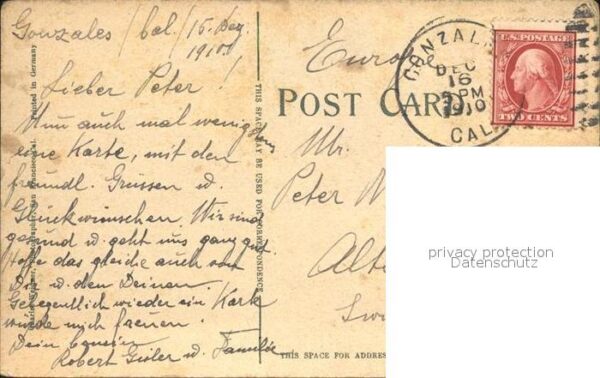 Gonzales / Cal. / 15. Dez.
1910.
Lieber Peter!
Nun auch mal wenigstens
eine Karte, mit den
freundl. Grüssen u.
Glückwünschen. Wir sind
gesund u. geht uns ganz gut.
Hoffe das gleiche auch von
Dir u. den Deinen.
Gelegentlich wieder ein Karte
würde mich freuen.
Dein Cousin
Robert u. Familie
Printed in Germany
THIS SPACE MAY BE USED FOR CORRESPONDENCE.
Europe
POST CARD
GONZALES
DEC
16
PM
1910
CAL.
U.S. POSTAGE
TWO CENTS
Mr.
Peter
Alt
Sw
privacy protection
Datenschutz
THIS SPACE FOR ADDRES